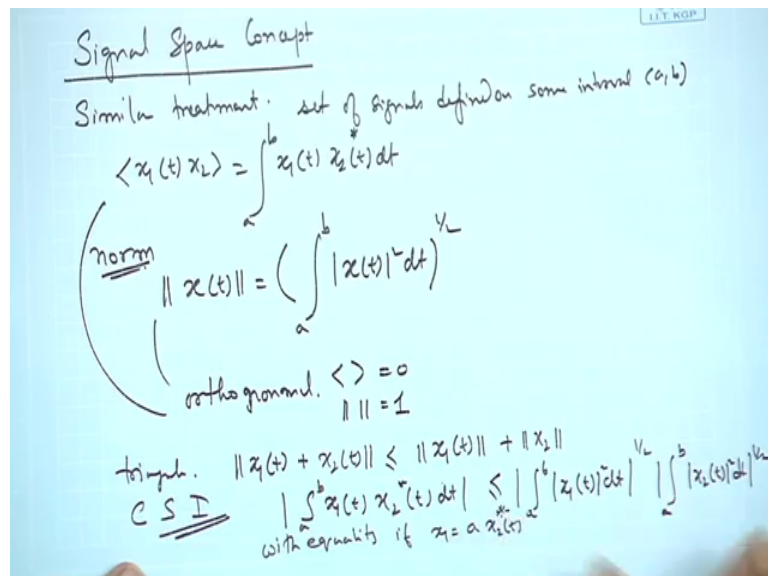 I.I.T. KGP
Signal Space Concept
Similar treatment. set of signals defined on some interval (a,b)
<x₁(t) x₂> = ∫ₐᵇ x₁(t) x₂*(t) dt
norm
‖x(t)‖ = (∫ₐᵇ |x(t)|² dt)^½
orthogronormal. < > = 0
‖ ‖ = 1
triangle. ‖x₁(t) + x₂(t)‖ ≤ ‖x₁(t)‖ + ‖x₂‖
C S I |∫ₐᵇ x₁(t) x₂*(t) dt| ≤ |∫ₐᵇ |x₁(t)|² dt|^½ |∫ₐᵇ |x₂(t)|² dt|^½
with equality if x₁ = a x₂*(t)